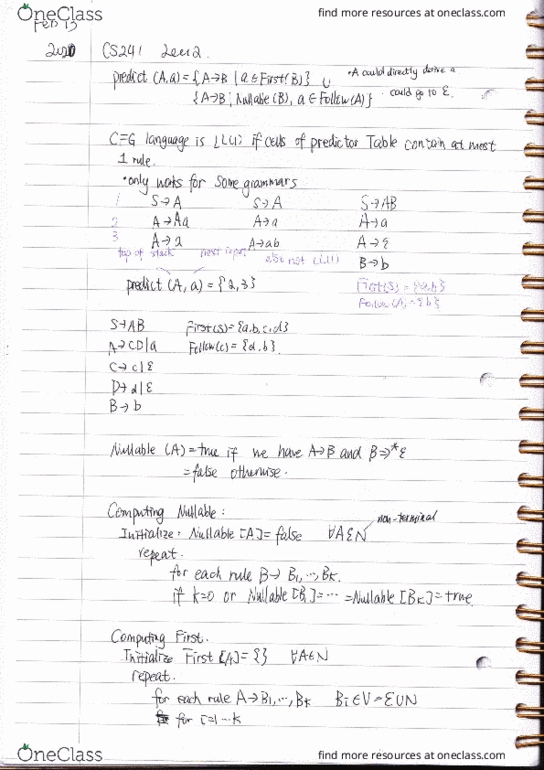 OneClass
find more resources at oneclass.com
Feb 13
2020 CS241 Lec12
predict (A,a) = {A→B | a ∈ First(B)} ∪ • A could directly derive a
{A→B | Nullable(B), a ∈ Follow(A)} could go to ε.
CFG language is LL(1) if cells of predictor Table contain at most
1 rule.
• only works for some grammars
1 S→A S→A S→AB
2 A→Aa A→a A→a
3 A→a A→ab A→ε
top of stack next input also not LL(1) B→b
predict (A, a) = {2,3} First(S) = {a,b}
Follow(A) = {b}
S→AB First(S) = {a,b,c,d}
A→CD|a Follow(c) = {d,b}
C→c|ε
D→d|ε
B→b
Nullable (A) = true if we have A→B and B⇒*ε
= false otherwise.
Computing Nullable:
non-terminal
Initialize: Nullable [A] = false ∀A∈N
repeat.
for each rule B→B1,…,Bk.
if k=0 or Nullable [B1] = … = Nullable [Bk] = true
Computing First.
Initialize First [A] = {} ∀A∈N
repeat.
for each rule A→B1,…,Bk Bi∈V = Σ∪N
for i=1…k
OneClass
find more resources at oneclass.com